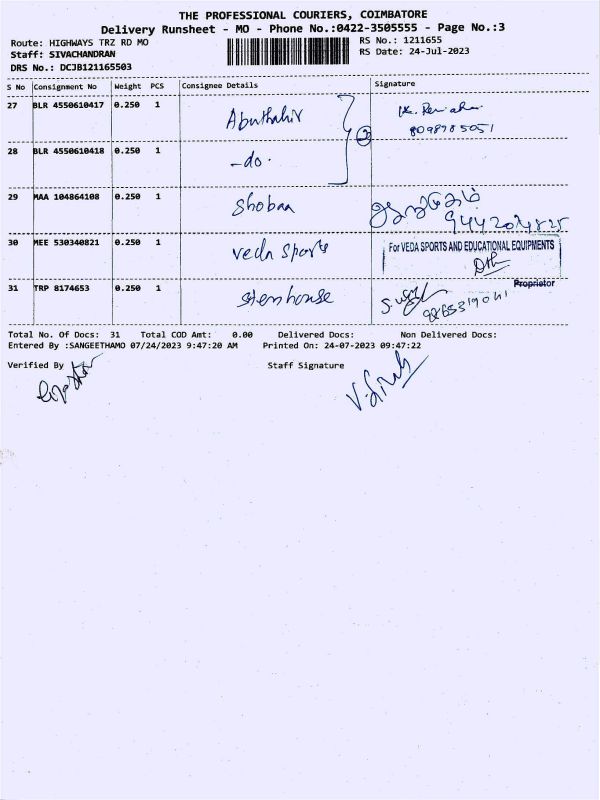 THE PROFESSIONAL COURIERS, COIMBATORE
Delivery Runsheet - MO - Phone No.:0422-3505555 - Page No.:3
Route: HIGHWAYS TRZ RD MO RS No.: 1211655
Staff: SIVACHANDRAN RS Date: 24-Jul-2023
DRS No.: DCJB121165503
S No Consignment No Weight PCS Consignee Details Signature
27 BLR 4550610417 0.250 1 Abuthahir
8098785051
28 BLR 4550610418 0.250 1 -do-
29 MAA 104864108 0.250 1 Shobaa
30 MEE 530340821 0.250 1 Veda Sports For VEDA SPORTS AND EDUCATIONAL EQUIPMENTS
Proprietor
31 TRP 8174653 0.250 1 Stenhouse
Total No. Of Docs: 31 Total COD Amt: 0.00 Delivered Docs: Non Delivered Docs:
Entered By :SANGEETHAMO 07/24/2023 9:47:20 AM Printed On: 24-07-2023 09:47:22
Verified By Staff Signature